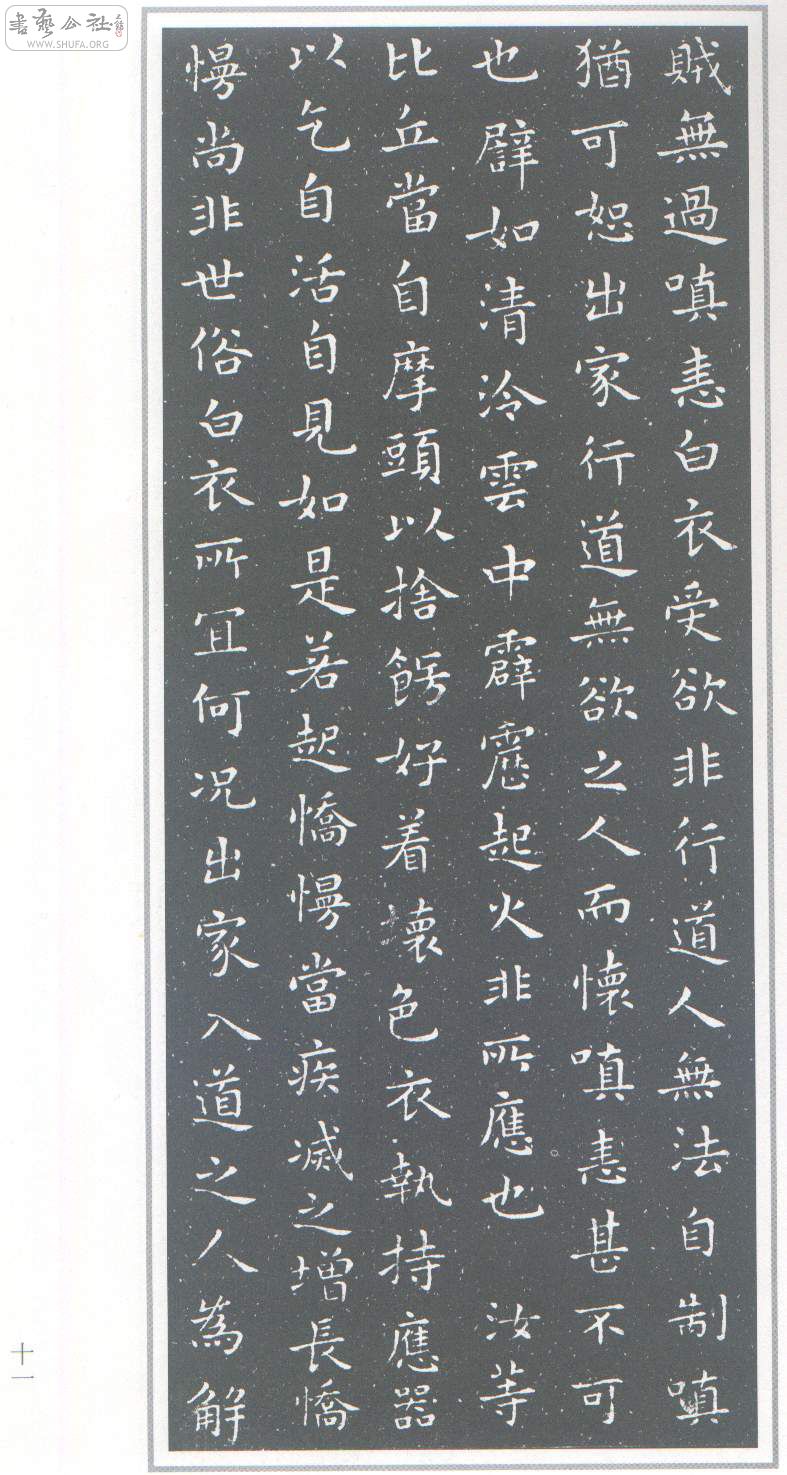 賊無過嗔恚白衣受欲非行道人無法自制嗔
猶可恕出家行道無欲之人而懷嗔恚甚不可
也譬如清泠雲中霹靂起火非所應也 汝等
比丘當自摩頭以捨餝好着壞色衣執持應器
以乞自活自見如是若起憍慢當疾滅之增長憍
慢尚非世俗白衣所冝何况出家入道之人為解
書藝公社
WWW.SHUFA.ORG
十一